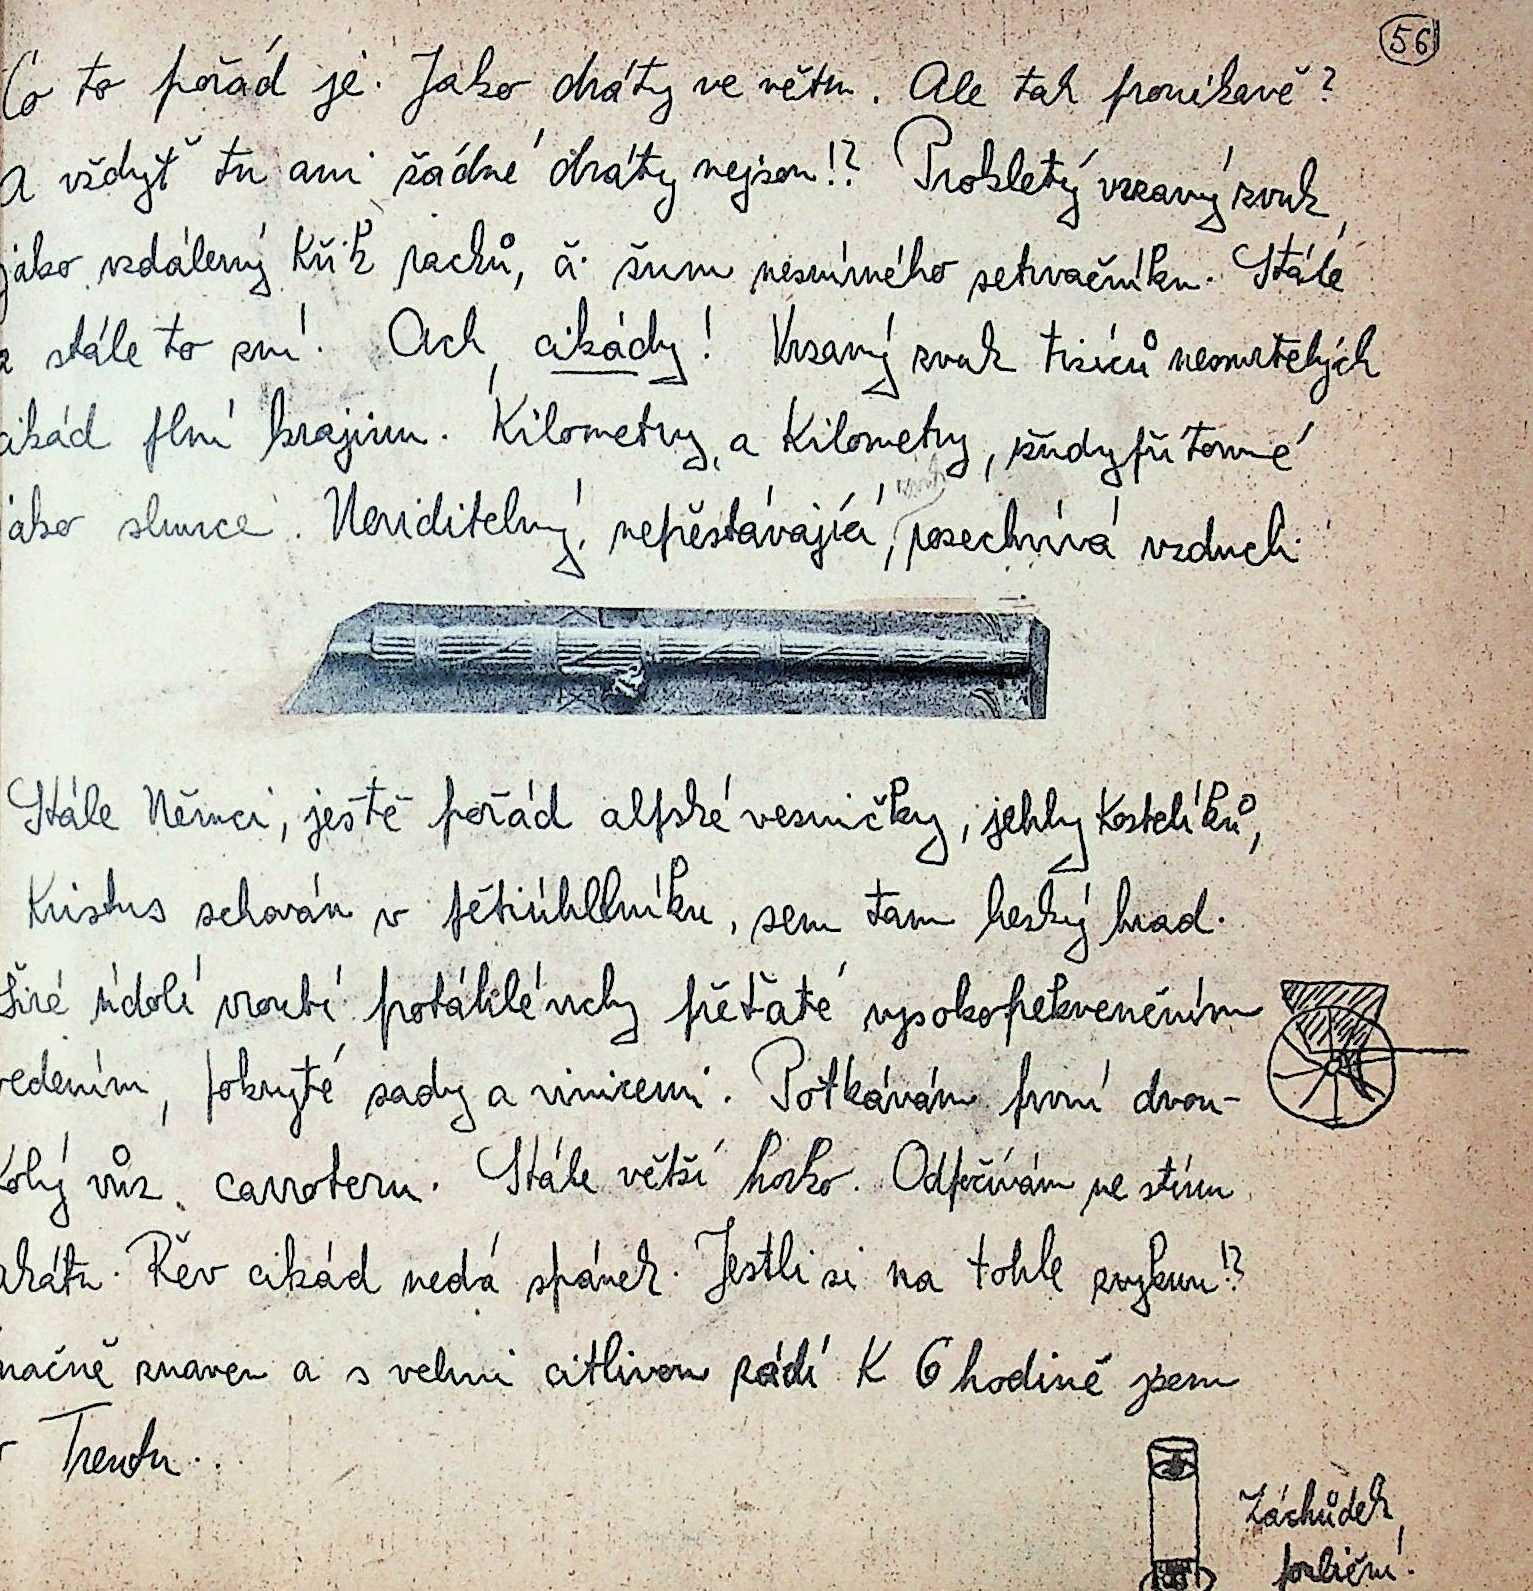 56
Co to pořád je. Jako dráty ve větru. Ale tak pronikavě?
A vždyť tu ani žádné dráty nejsou!? Prokletý vrzavý zvuk,
jako vzdálený křik racků, či šum nesmírného setrvačníku. Stále
a stále to zní. Ach, cikády! Vrzavý zvuk tisíců nesmrtelných
cikád plní krajinu. Kilometry a kilometry, všudypřítomné
jako slunce. Neviditelný, nepřestávající, prosechnívá vzduch.
Stále Němci, ještě pořád alpské vesničky, jehly kostelíků,
Kristus schován v pětiúhelníku, sem tam hezký hrad.
Širé údolí vroubí potáhlé vrchy přeťaté vysokofrekvenčním
vedením, pokryté sady a vinicemi. Potkávám první dvou-
kolý vůz, carroteru. Stále větší horko. Odpočívám ve stínu
akátu. Řev cikád nedá spánek. Jestli si na tohle zvyknu!?
Značně znaven a s velmi citlivou zádí K 6 hodině jsem
v Trentu..
Záchůdek
pouliční.